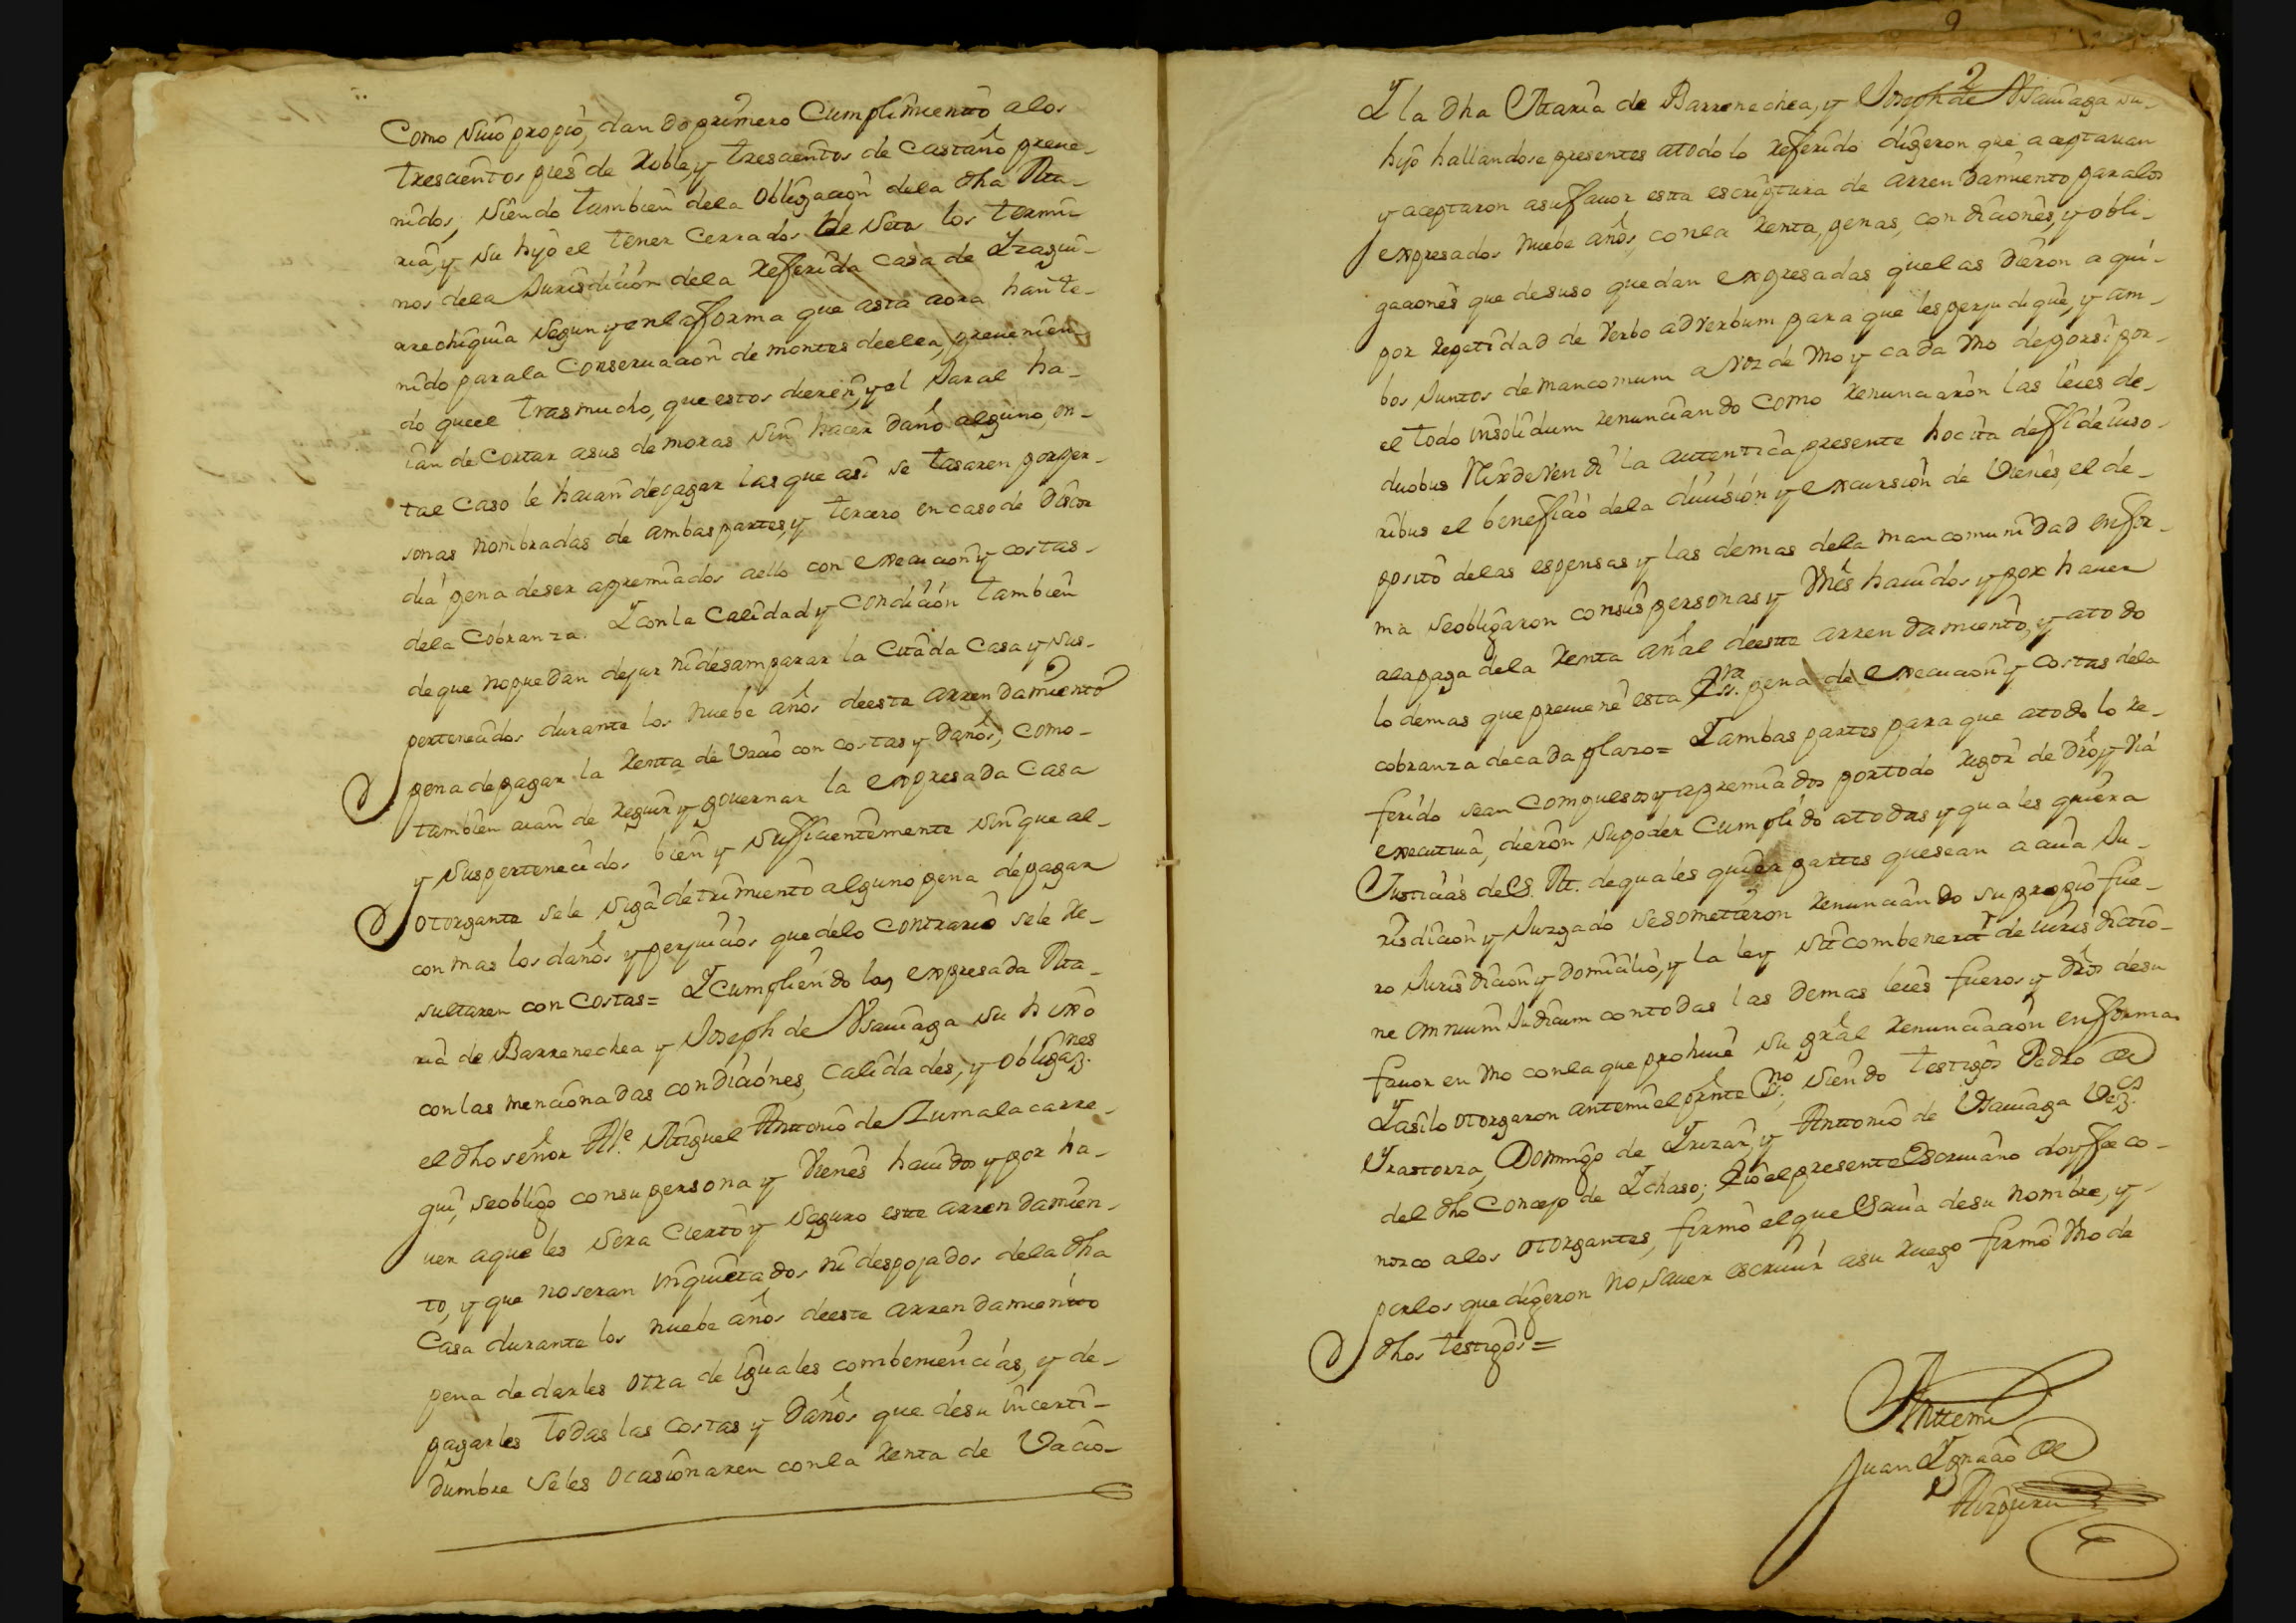 Como suio propio, dando primero Cumplimiento alos
trescientos pies de Roble, y trescientos de Castaño preue-
nidos, siendo tambien dela obligacion dela dha Ma-
ria, y su hijo el tener Cerrados de Setos los termi-
nos dela Jurisdicion dela Referida casa de Yzagui-
rrechiquia segun y enla forma que asta aora han te-
nido parala Conseruacion de montes deella, preuenien-
do que el trasmucho, que estos dieren, y el Jaral ha-
ian de Cortar asus demoras sin hacer daño alguno, en-
tal Caso le haian depagar las que asi se tasaren porper-
sonas nombradas de ambas partes, y tercero en caso de discor
dia pena deser apremiados aello con execucion y costas-
dela Cobranza. Y conla Calidad y condicion tambien
de que no puedan dejar ni desamparar la Citada Casa y sus-
pertenecidos durante los nuebe años deeste arrendamiento
pena depagar la Renta de Vacio con costas y daños, como-
tambien aian de Reguir y gouernar la expresada Casa
y suspertenecidos bien y sufficientemente sin que al-
otorgante sele siga detrimento alguno pena depagar
con mas los daños y perjuicios que delo contrario sele Re-
sultaren con costas= Y cumpliendo los expresada Ma-
ria de Barrenechea y Joseph de Ysauiaga su hixo
conlas mencionadas condiciones, calidades, y obligaz.nes
el dho señor Mc. Miguel Anttonio de Zumalacarre-
gui, se obligo consu persona y Vienes hauidos y por ha-
uer aque les sera Cierto y seguro este arrendamien-
to, y que no seran inquietados ni despojados dela dha
Casa durante los nuebe años deeste arrendamiento
pena de darles otra de iguales combeniencias, y de-
pagarles todas las costas y daños que desu incerti-
dumbre se les ocasionaren conla Renta de Vacio-
9
Y la dha Maria de Barrenechea, y Joseph de Ysauiaga su-
hijo hallandose presentes atodo lo Referido digeron que aceptauan
y aceptaron asu fauor esta escriptura de arrendamiento paralos
expresados nuebe años, conla Renta, penas, condiciones, y obli-
gaciones que desuso quedan expresadas quelas dieron aqui-
por Repetidad de Verbo adverbum para que les perjudique, y am-
bos Juntos demancomun a Voz de Vno y cada Vno deporsi por-
el todo insolidum Renunciando como Renunciaron las leies de-
duobus Rex devendi la autentica presente hocita deffideiuso-
ribus el beneficio dela diuision y excursion de Vienes, el de-
posito delas espensas y las demas dela mancomunidad enfor-
ma seobligaron consus personas y Vnes hauidos y por hauer
ala paga dela Renta añal deeste arrendamiento, y atodo
lo demas que preuiene esta Ess.ra pena de execucion y costas dela
cobranza decada plazo= Y ambas partes para que atodo lo Re-
ferido sean compuesos y apremiados portodo Rigor de dro, y Via
executiua, dieron supoder Cumplido atodas y quales quiera
Justicias de S. M. dequales quiera partes quesean a cuia Ju-
risdicion y Juzgado sesometieron Renunciando su propio fue-
ro Jurisdicion y Domicilio, y la ley sit combenerit de iurisdictio-
ne omnium Judicum contodas las demas leies fueros y dros desu
fauor en Vno conla que prohiue su gral Renunciacion enforma
Y asilo otorgaron antemi el pnte Ss.no, siendo testigos Pedro de
Yrastorza, Domingo de Yrizar, y Anttonio de Ysauiaga Vez.s
del dho Concejo de Ychaso; Y io el presente Escriuano doyffee co-
nozco alos otorgantes, firmo el que sauia desu nombre, y-
porlos que digeron no sauer escriuir asu ruego firmo Vno de
dhos testigos=
Anttemi
Juan Ygnacio de
Aizpuru